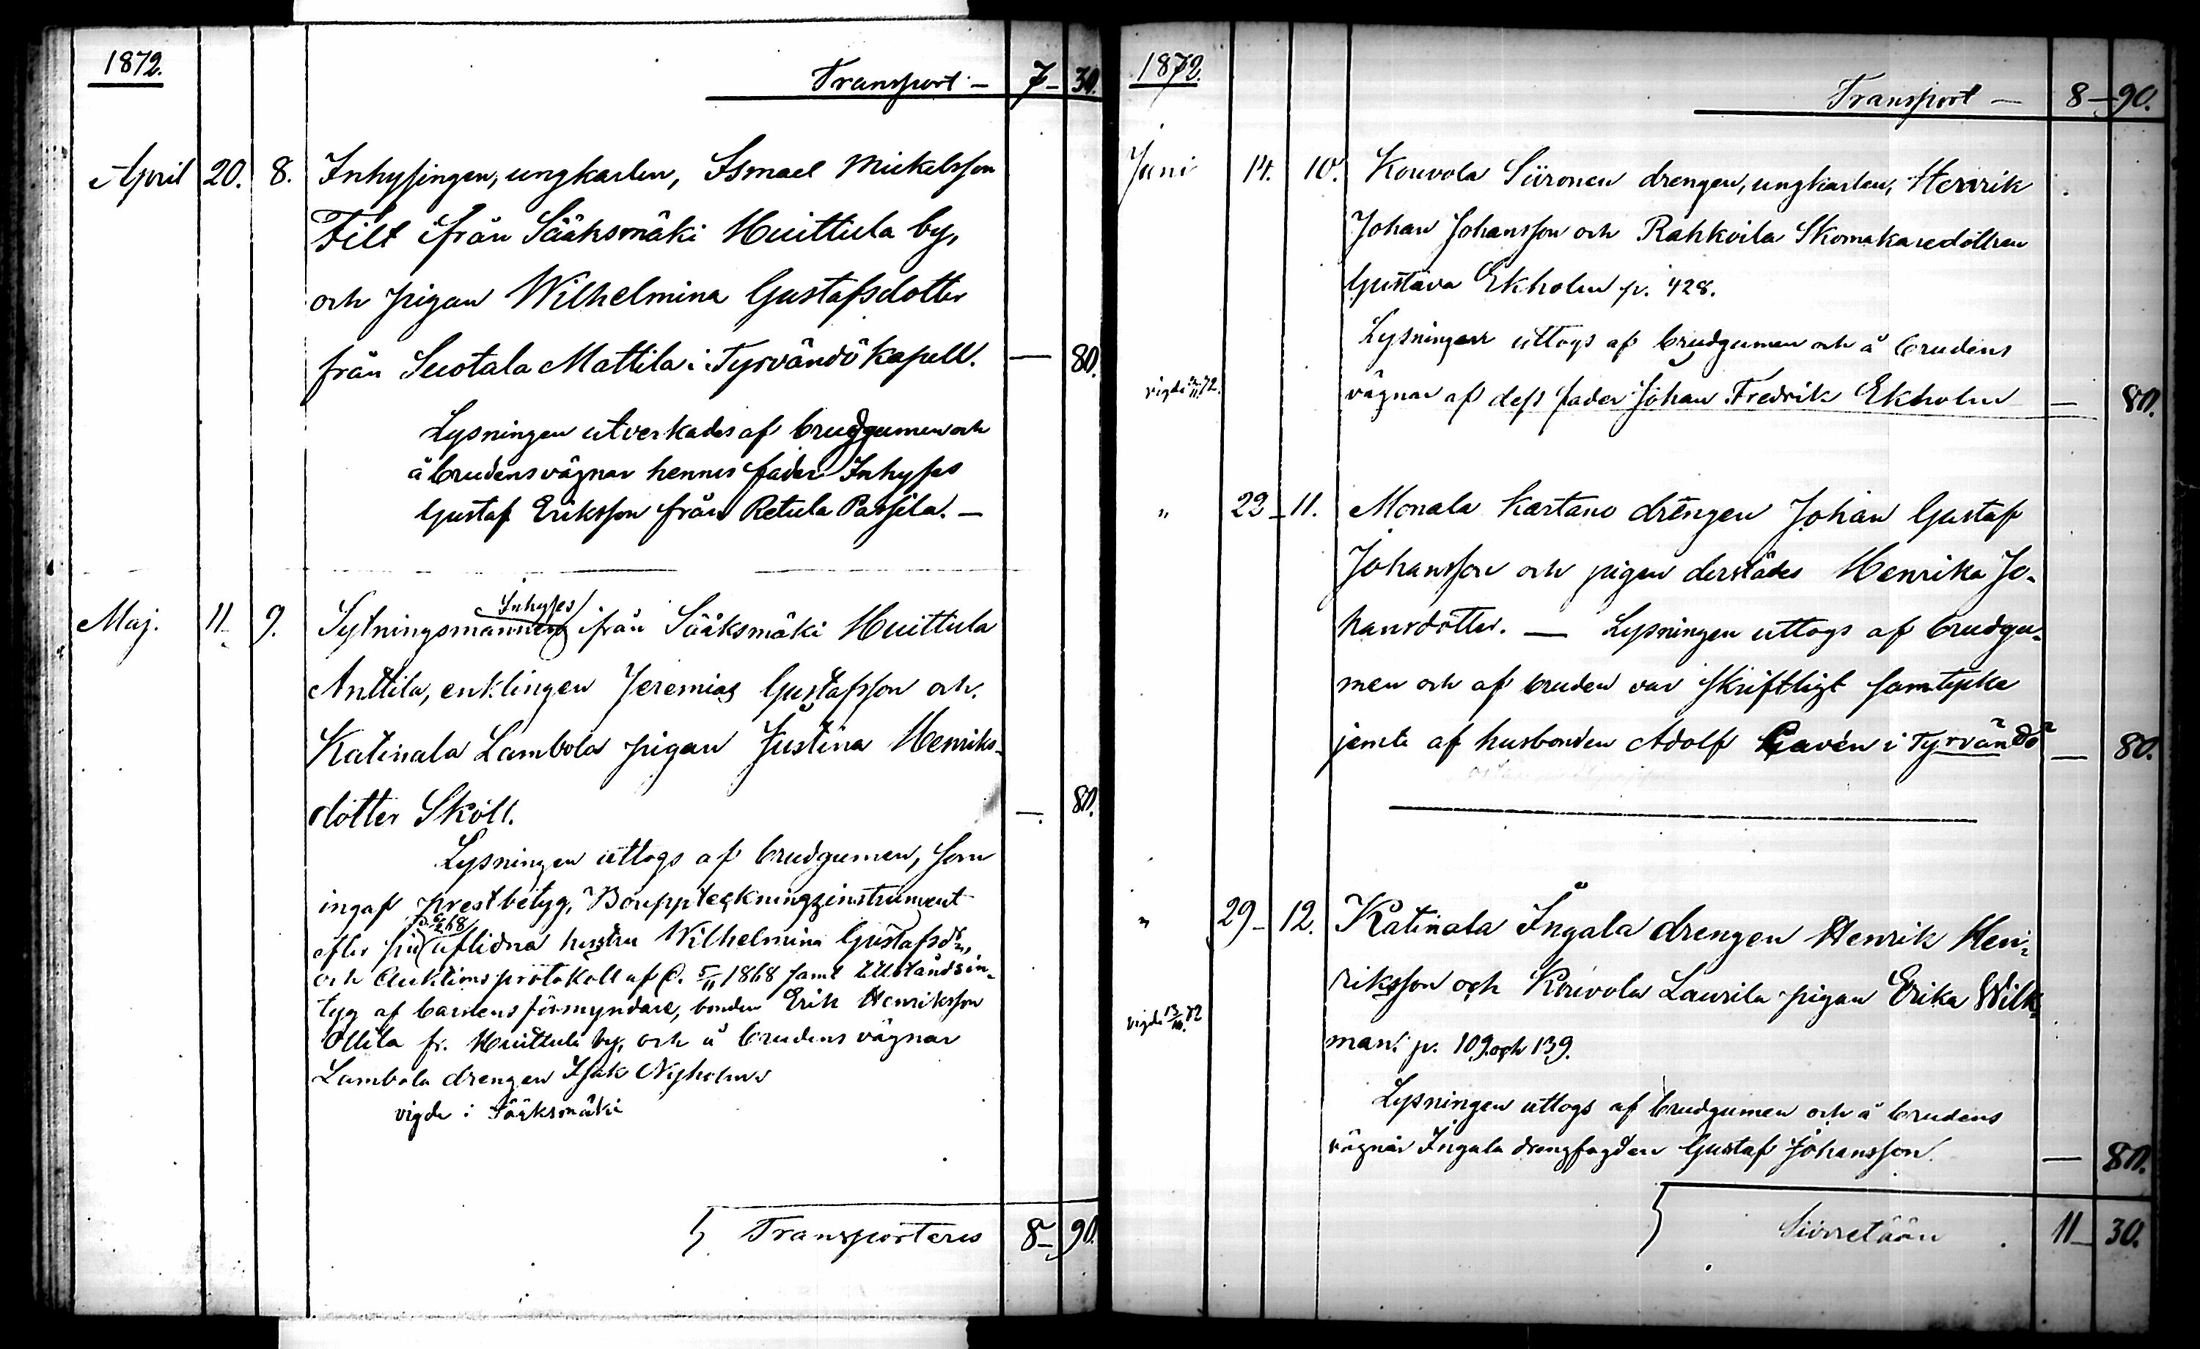 1872.
Transport — 7 — 30.
April 20. 8. Inhysingen, ungkarlen, Ismael Mickelsson
Filt ifrån Sääksmäki Huittula by,
och pigan Wilhelmina Gustafsdotter
från Suotala Mattila i Tyrväntö kapell. — 80.
Lysningen utverkades af brudgumen och
å brudens vägnar hennes fader Inhyses
Gustaf Eriksson från Retula Passila. —
Inhyses
Maj. 11. 9. Sytningsmannen ifrån Sääksmäki Huittula
Anttila, enklingen Jeremias Gustafsson och
Katinala Lambola pigan Justina Henriks-
dotter Sköll. — 80.
Lysningen uttogs af brudgumen, som
ingaf prestbetyg, Bouppteckningsinstrument
efter sin aflidna hustru Wilhelmina Gustafsdr,
och Auktionsprotokoll af d. 5/11 1868 samt tillståndsin-
tyg af barnens förmyndare, bonden Erik Henriksson
Ollila fr. Huittula by, och å brudens vägnar
Lambola drengen Isak Nyholm
vigde i Sääksmäki
Transporteras 8 — 90.
1872.
Transport — 8 — 90.
Juni 14. 10. Kouvola Siironen drengen, ungkarlen, Henrik
Johan Johansson och Rahkoila Skomakaredottren
Gustava Ekholm p. 428.
Lysningen uttogs af brudgumen och å brudens
vägnar af dess fader Johan Fredrik Ekholm — 80.
" 22 — 11. Monala Kartano drengen Johan Gustaf
Johansson och pigan derstädes Henrika Jo-
hansdotter. — Lysningen uttogs af brudgu-
men och af bruden var skriftligt samtycke
jemte af husbonden Adolf Gavén i Tyrväntö — 80.
" 29 — 12. Katinala Ingala drengen Henrik Hen-
riksson och Kouvola Laurila pigan Erika Wilk-
vigde 13/10 72
man. p. 109 och 139.
Lysningen uttogs af brudgumen och å brudens
vägnar Ingala drengfogden Gustaf Johansson. — 80.
Siirretään 11 — 30.